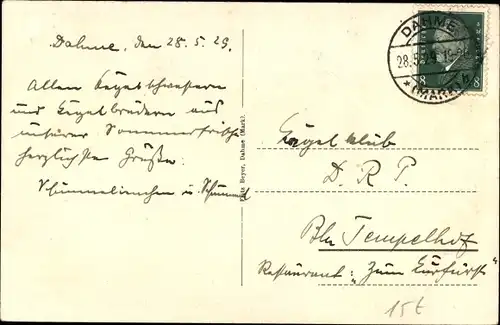 Dahme, den 28.5.29.
Allen Kegelschwestern
und Kegelbrüdern aus
unserer Sommerfrische
herzlichste Grüße.
Schimmelinchen u. Schimmel
Beyer, Dahme (Mark).
DAHME
28.5.29. 19-20
*(MARK) b
8 8
Kegelklub
D. R. P.
Bln Tempelhof
Restaurant: „Zum Kurfürst"
15t